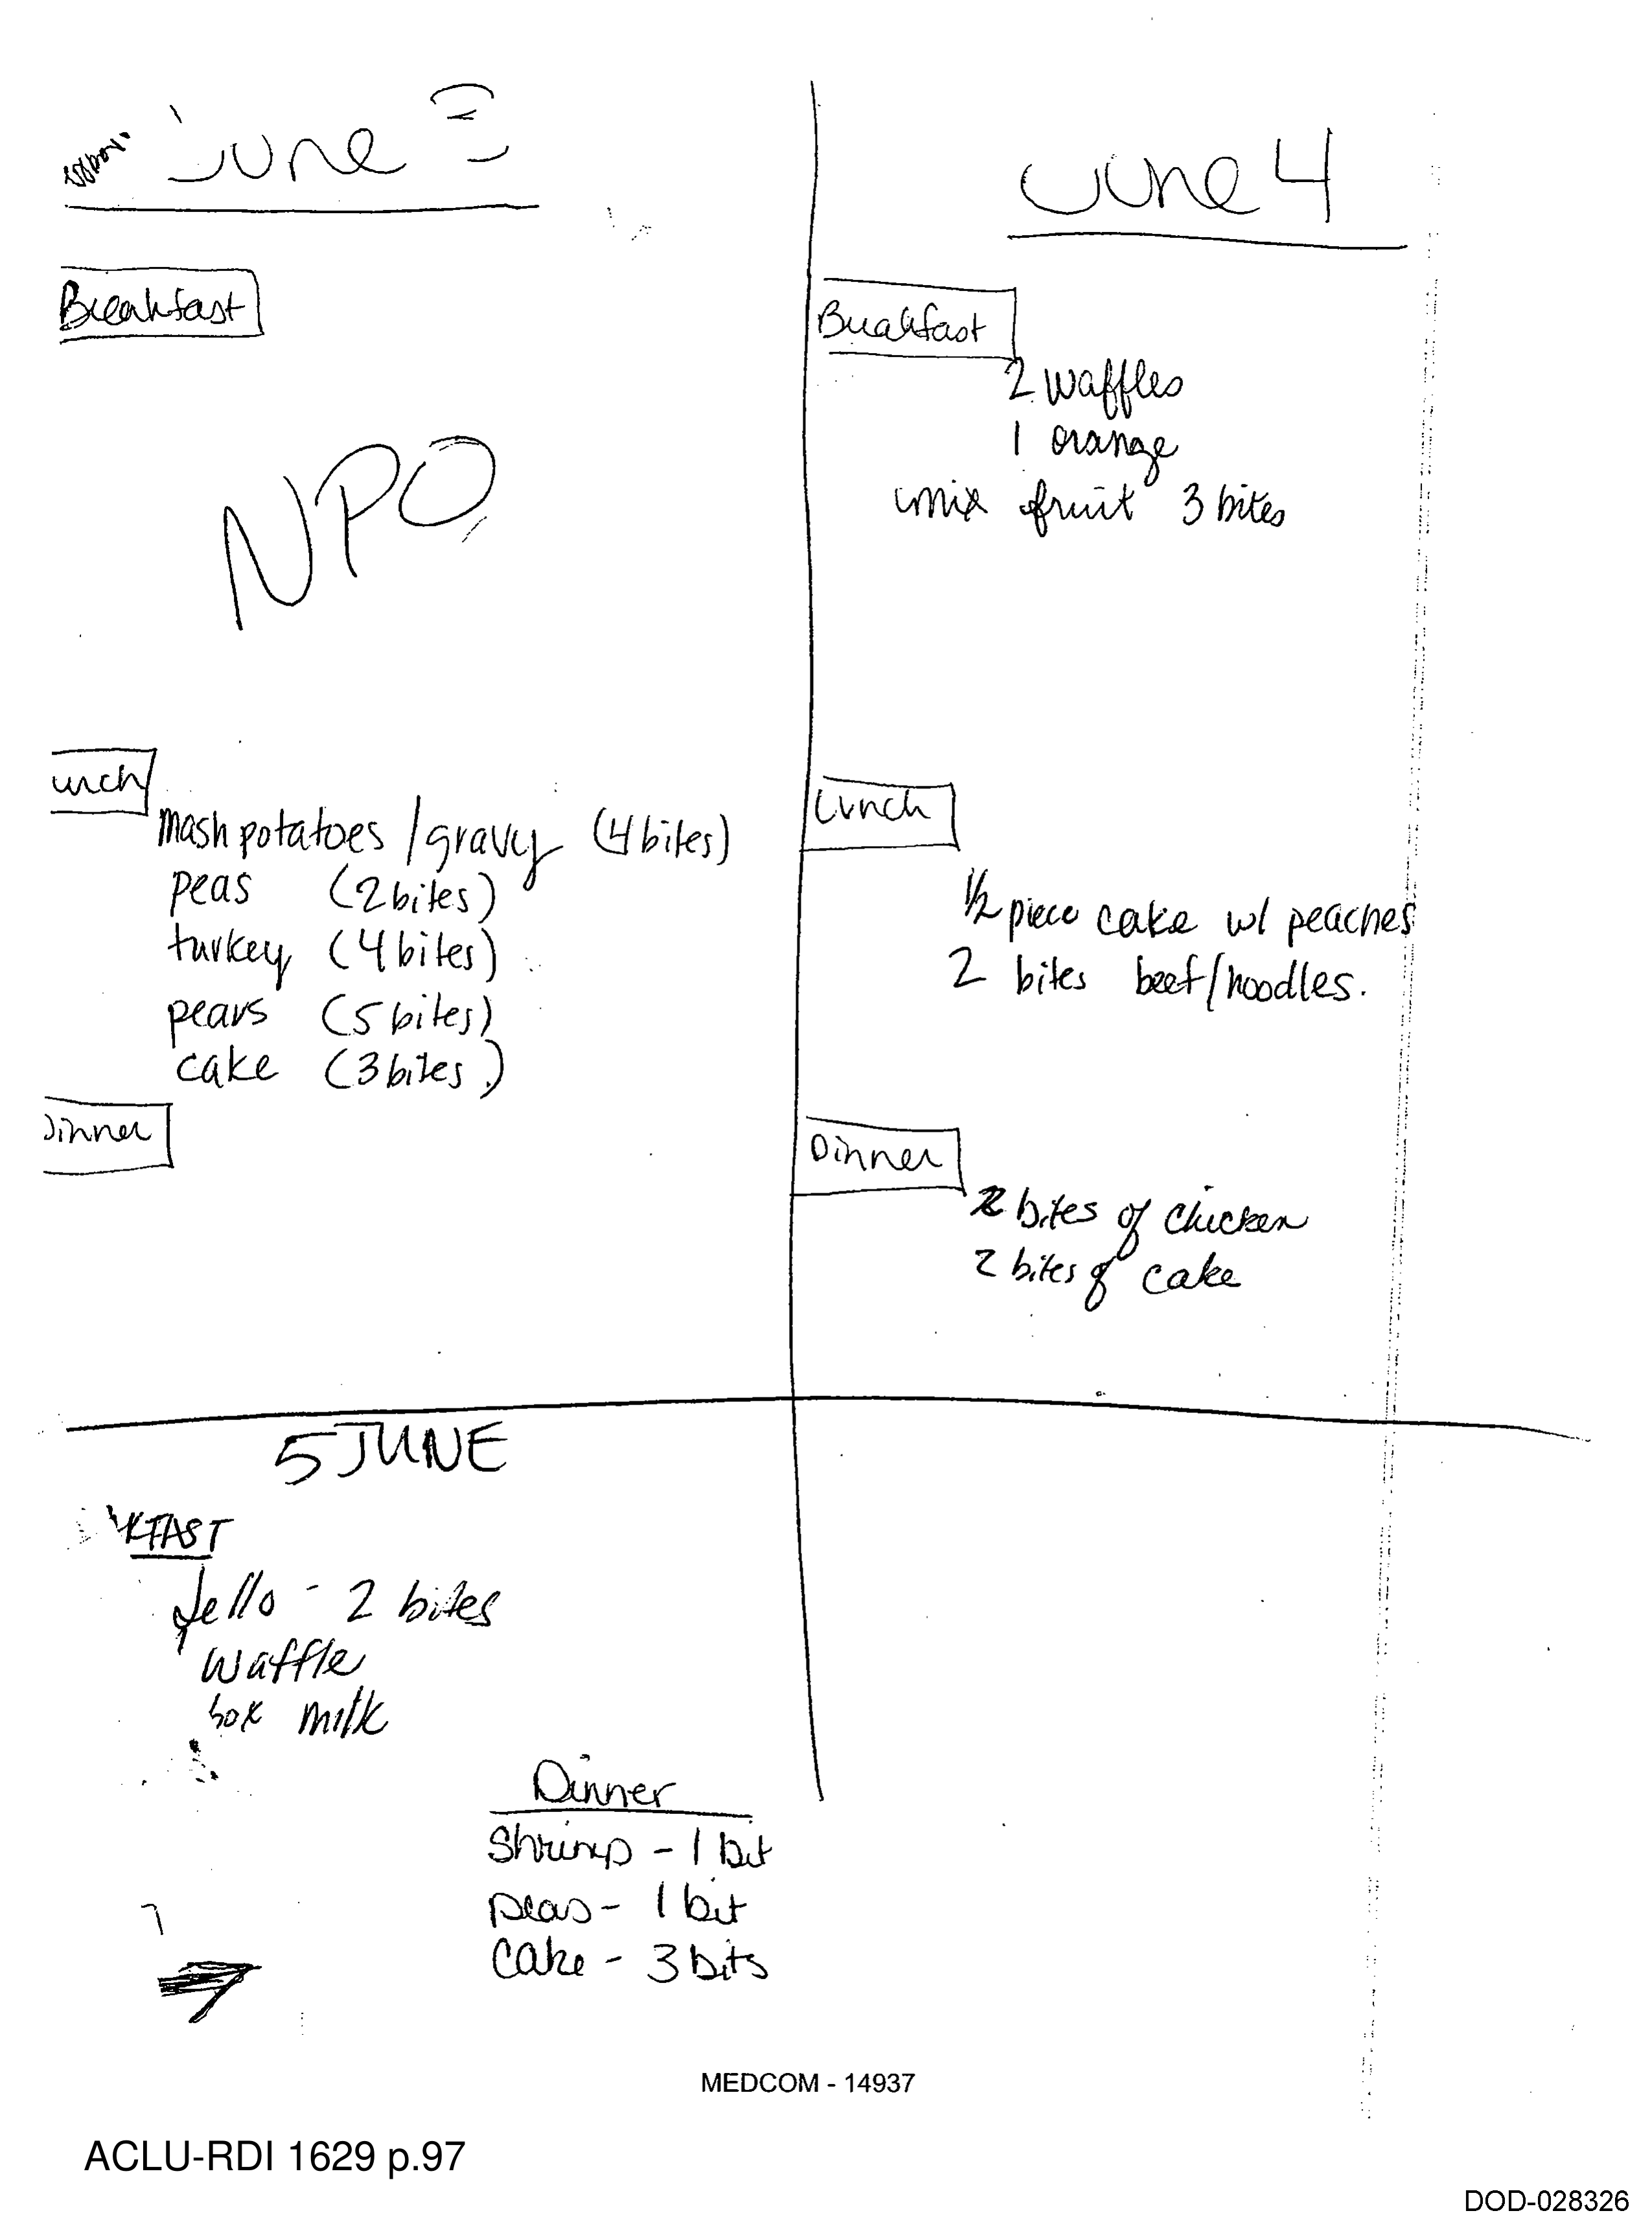 June 3
Breakfast
NPO
unch
mash potatoes / gravy (4 bites)
peas (2 bites)
turkey (4 bites)
pears (5 bites)
cake (3 bites)
Dinner
June 4
Breakfast
2 waffles
1 orange
mix fruit 3 bites
Lunch
1/2 piece cake w/ peaches
2 bites beef/noodles.
Dinner
2 bites of chicken
2 bites of cake
5 JUNE
KFAST
Jello - 2 bites
waffle
box milk
Dinner
Shrimp - 1 bit
peas - 1 bit
Cake - 3 bits
MEDCOM - 14937
ACLU-RDI 1629 p.97
DOD-028326